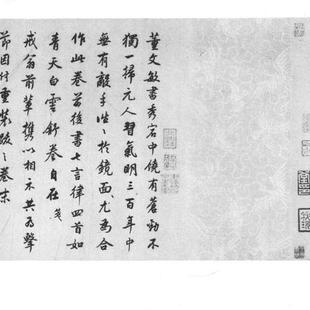 董文敏書秀宕中饒有蒼勁不
獨一掃元人習氣明三百年中
無有敵手此
於鏡面尤為合
作此卷前後書七言律四首如
青天白雲舒卷自在
戒翁前輩攜以相示共為擊
節因付重裝跋
卷末